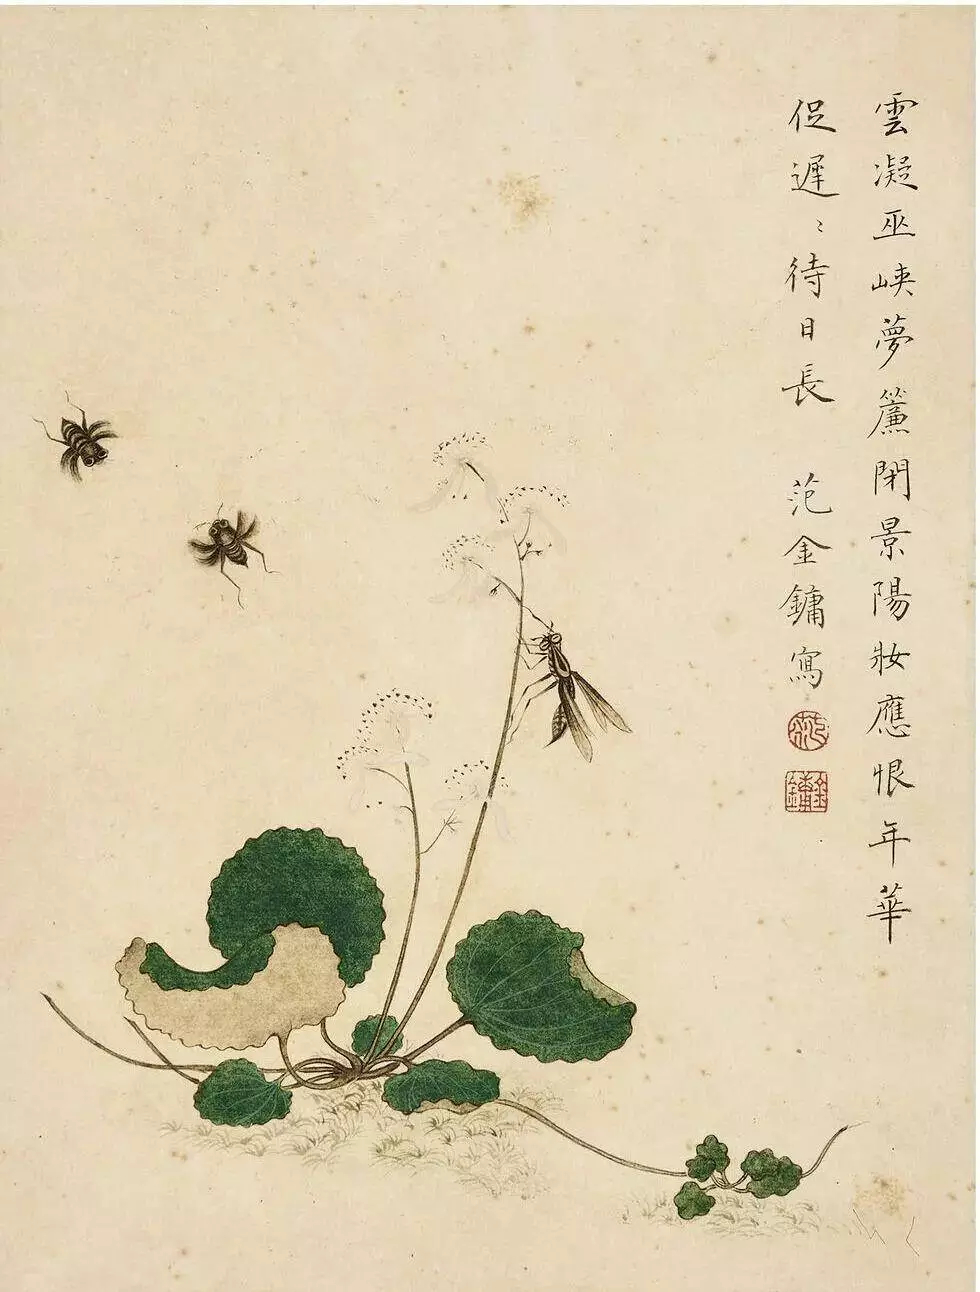 雲凝巫峡夢簾閉景陽妝應恨年華
促遲〻待日長 范金鏞寫